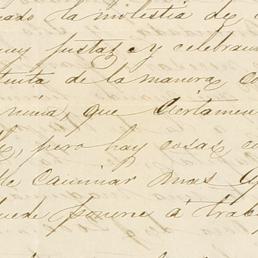 la molestia de
justas y celebra
de la manera co
que ciertamen
pero hay cosas, co
caminar mas
ponerse á trab